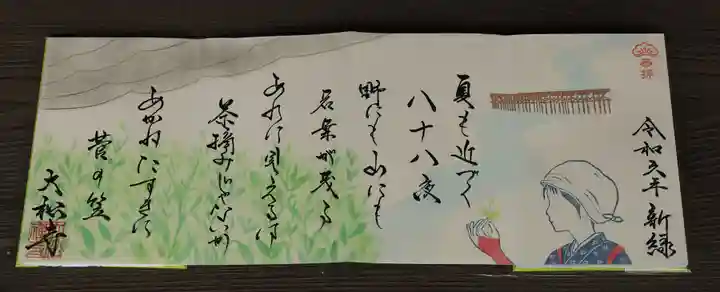 奉拝
令和六年 新緑
夏も近づく
八十八夜
野にも山にも
若葉が茂る
あれに見えるは
茶摘みじゃないか
あかねたすきに
菅の笠
大松寺